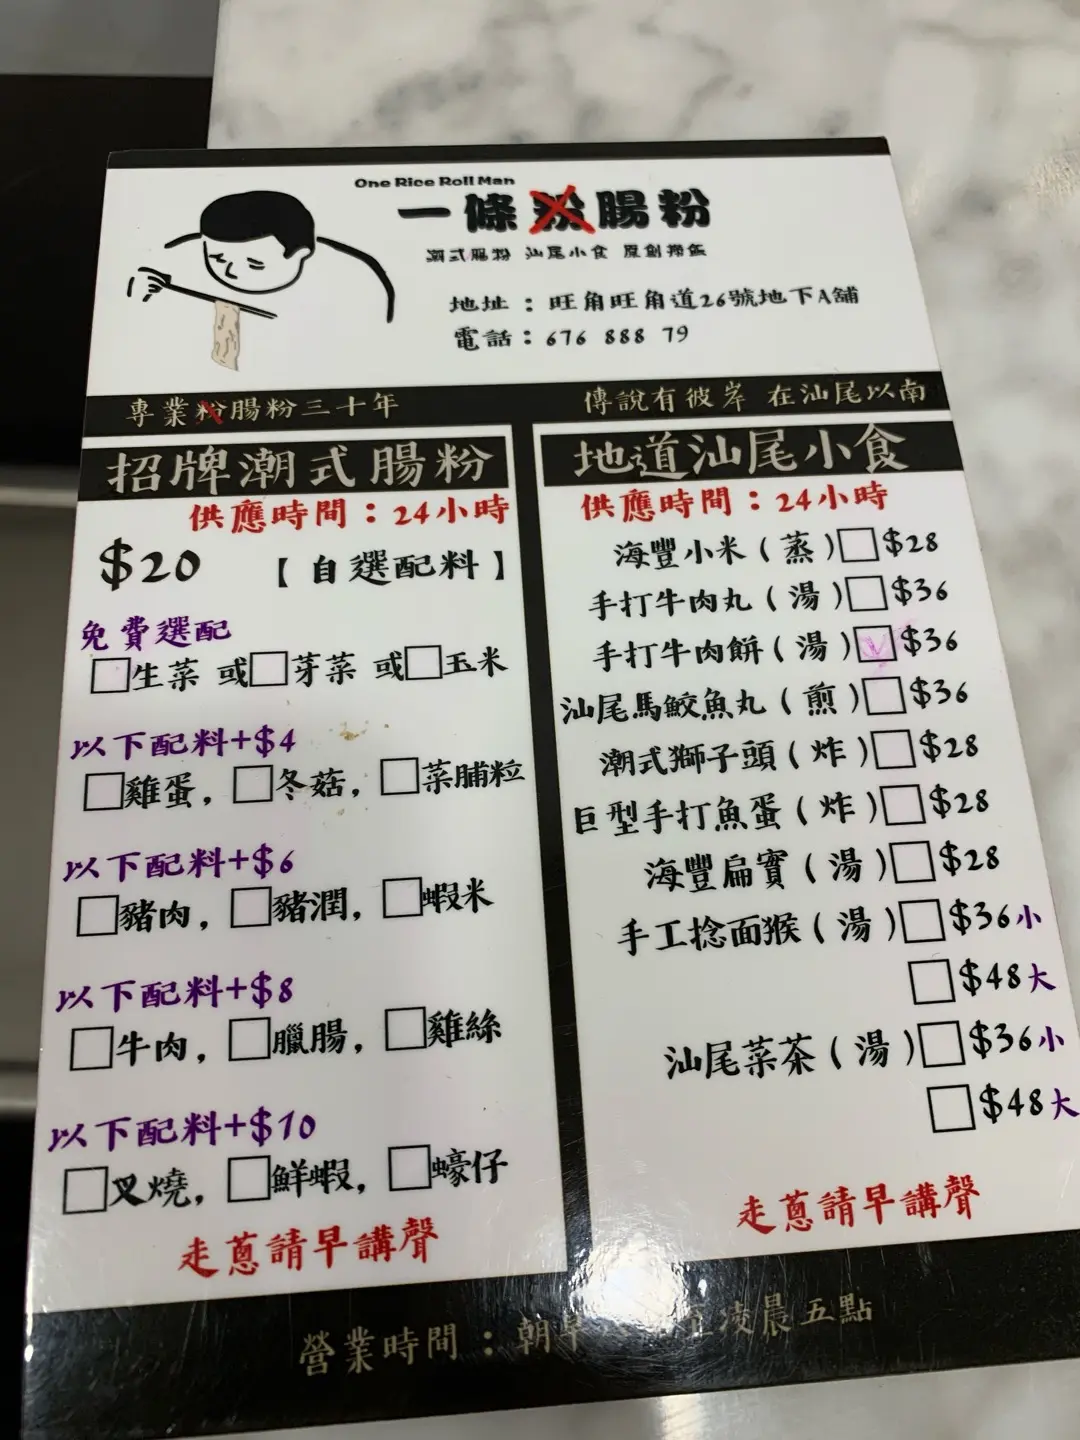 One Rice Roll Man
一條粉腸粉
潮式腸粉 汕尾小食 原創撈飯
地址：旺角旺角道26號地下A舖
電話：676 888 79
專業粉腸粉三十年
傳說有彼岸 在汕尾以南
招牌潮式腸粉
供應時間：24小時
$20 【自選配料】
免費選配
生菜 或 芽菜 或 玉米
以下配料+$4
雞蛋, 冬菇, 菜脯粒
以下配料+$6
豬肉, 豬潤, 蝦米
以下配料+$8
牛肉, 臘腸, 雞絲
以下配料+$10
叉燒, 鮮蝦, 蠔仔
走蔥請早講聲
地道汕尾小食
供應時間：24小時
海豐小米(蒸) $28
手打牛肉丸(湯) $36
手打牛肉餅(湯) $36
汕尾馬鮫魚丸(煎) $36
潮式獅子頭(炸) $28
巨型手打魚蛋(炸) $28
海豐扁實(湯) $28
手工捻面猴(湯) $36小
$48大
汕尾菜茶(湯) $36小
$48大
走蔥請早講聲
營業時間：朝早 至凌晨五點